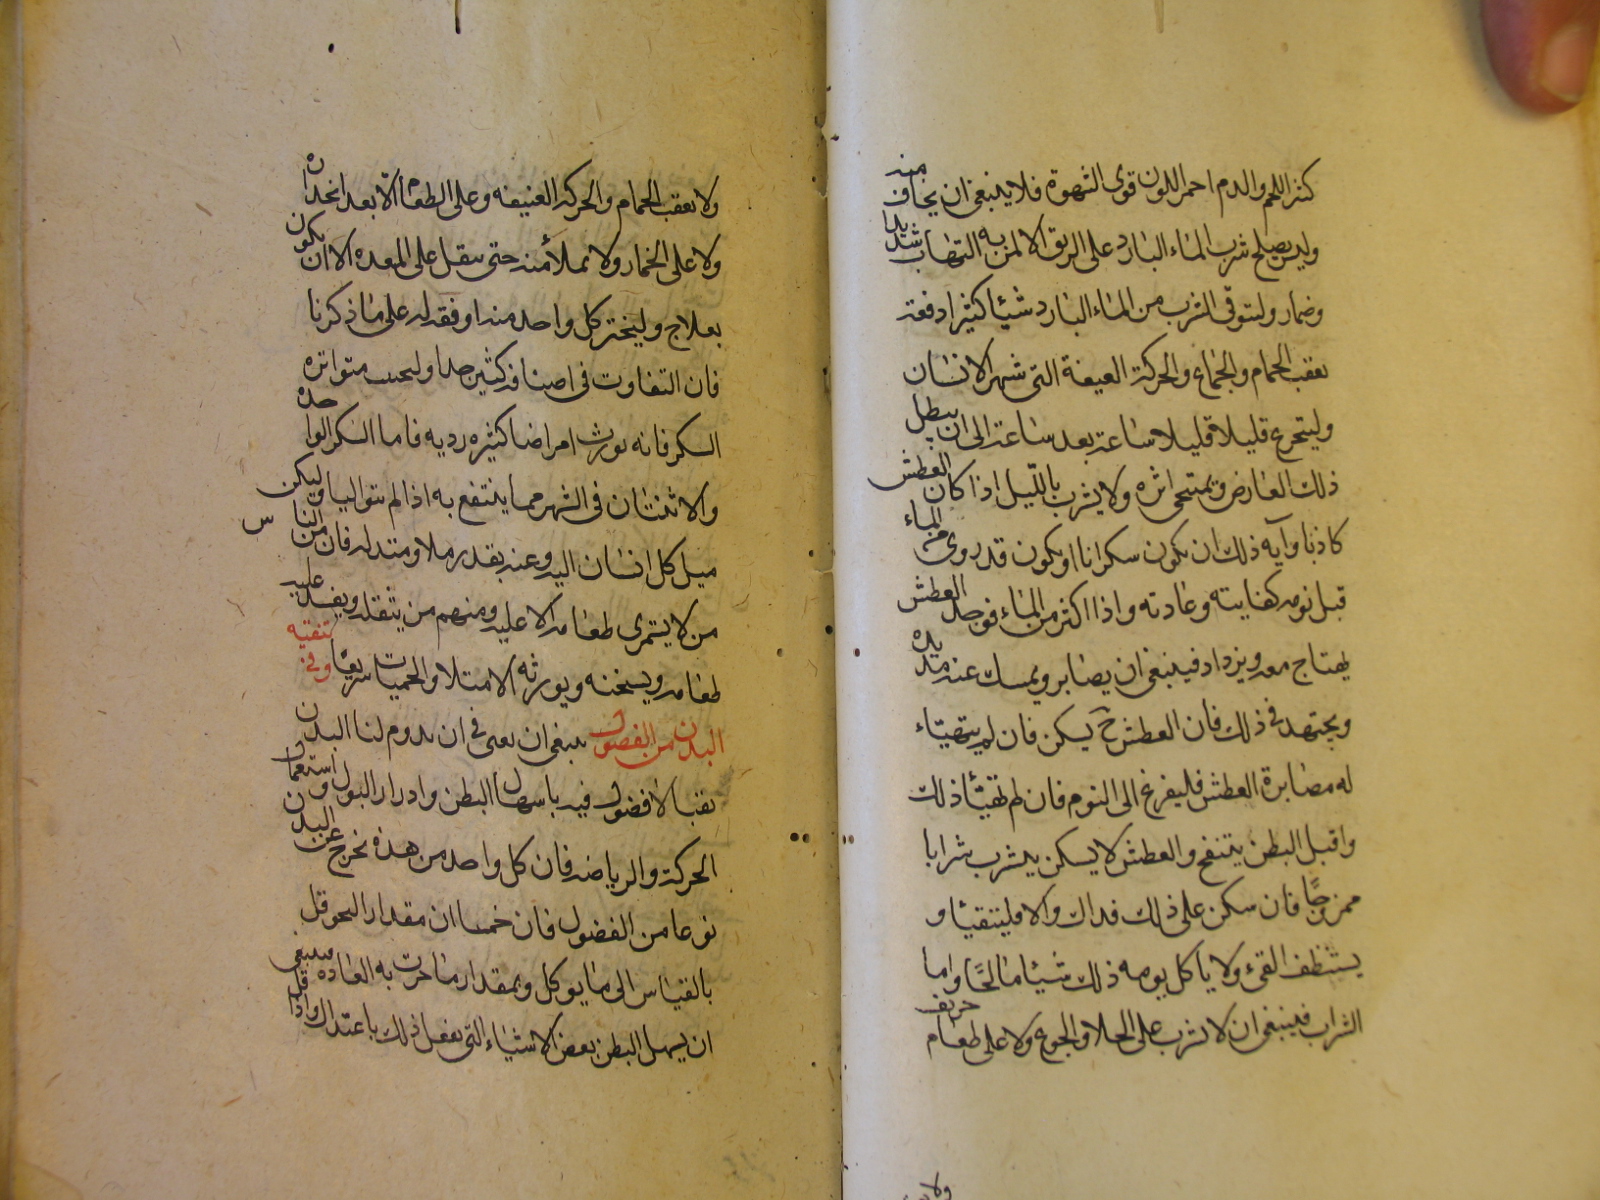 كثر اللحم والدم احمر اللون قوى الشهوة فلا ينبغى ان يخاف منه
وليس يصلح شرب الماء البارد على الريق الا لمن به التهاب شديد
وخمار وليتوقى الشرب من الماء البارد شيئا كثيرا دفعة
بعقب الحمام والجماع والحركة العنيفة التى شهر الانسان
وليتجرع قليلا قليلا ساعة بعد ساعة الى ان يبطل
ذلك العارض ويمتحى اثره ولا يشرب بالليل اذا كان العطش
كاذبا وآيه ذلك ان يكون سكرانا او يكون قد روى من الماء
قبل نومه كفايته وعادته واذا اكثر من الماء فوجد العطش
يهتاج معه ويزداد فينبغى ان يصابر ويمسك عنه مديده
ويجتهد فى ذلك فان العطش ح يسكن فان لم يتهياء
له مصابرة العطش فليفرغ الى النوم فان لم تهيئا ذلك
واقبل البطن ينتفخ والعطش لا يسكن يشرب شرابا
ممزوجا فان سكن على ذلك فذاك والا فليتقيئا و
يستنظف القىء ولا ياكل يومه ذلك شيئا مالحا واما
الشراب فينبغى ان لا تشرب على الخلا والجوع ولا على طعام حريف
ولا بعقب الحمام والحركة العنيفه وعلى الطعام الا بعد انحداره
ولا على الخمار ولا يملأ منه حتى يثقل على المعده الا ان يكون
بعلاج وليختر كل واحد منه اوفقه له على ما ذكرنا
فان التفاوت فى اصنافه كثير جدا وليجتنب متواتره
السكر فانه يورث امراضا كثيره رديه فاما السكر الواحده
والاثنتان فى الشهر مما ينتفع به اذا لم يتواليا وليكن
ميل كل انسان اليه وعنه بقدر ملاومته له فان من الناس
من لا يستمرى طعامه الا عليه ومنهم من يثقله ويفسد عليه
طعامه ويسخنه ويورثه الامتلا والحميات سريعا وفى تنقيه
البدن من الفضول ينبغى ان يعنى فى ان يدوم لنا البدن
نقيا لا فضول فيه باسهال البطن وادرار البول واستعمال
الحركة والرياضه فان كل واحد من هذه تخرج عن البدن
نوعا من الفضول فان خمسا ان مقدار النجو قل
بالقياس الى ما يوكل وبمقدار ما جرت به العاده فينبغى
ان يسهل البطن ببعض الاشياء التى يفعل ذلك باعتدال واذا قل